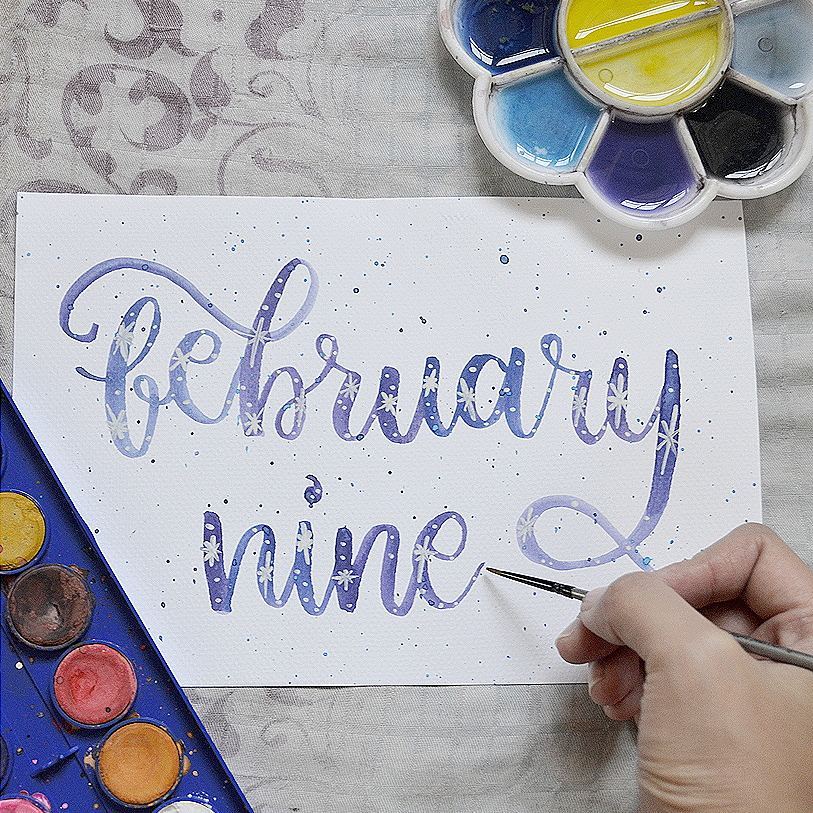 february
nine